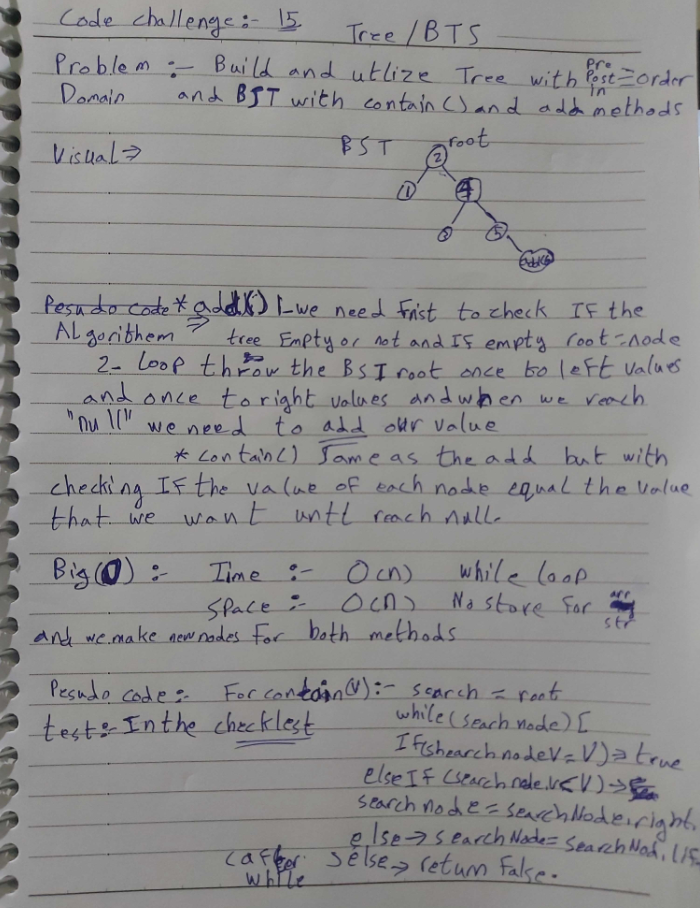 Code challenge:- 15
Tree/BTS
Problem :- Build and utlize Tree with Pre Post in =order
Domain and BST with contain() and add methods
Visual⇒ BST root
2
1 4
3 5
Pesudo code * add() 1-we need frist to check IF the
ALgorithem ⇒ tree Empty or not and IF empty root=node
2- loop throw the BST root once to left values
and once to right values and when we reach
"null" we need to add our value
* contain() same as the add but with
checking IF the value of each node equal the value
that we want until reach null.
Big(O) :- Time :- O(n) while loop
Space :- O(n) No store for arr str
and we make new nodes for both methods
Pesudo code:- For contain(V):- search = root
test:- In the checklest while(search node)[
If(shearch nodeV=V)⇒ true
else If (search node.V<V)→
search node = searchNode.right.
else→ searchNode=
(after while }else→ return false.